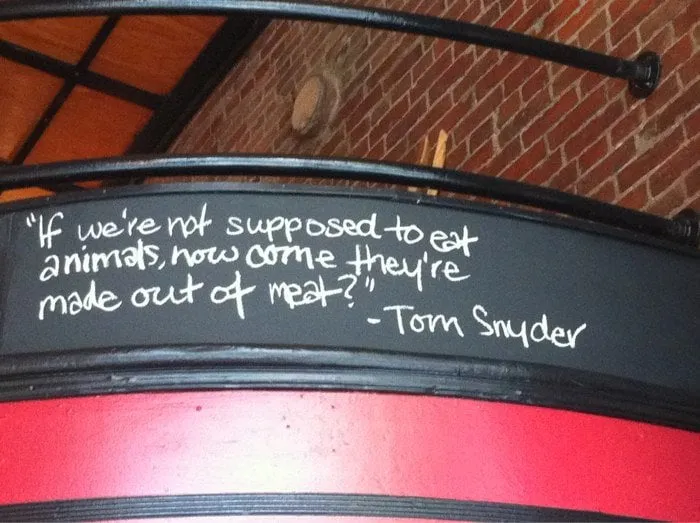 "If we're not supposed to eat
animals, how come they're
made out of meat?"
- Tom Snyder